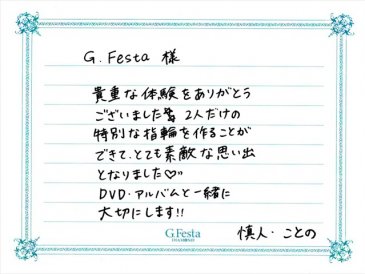 G.Festa 様
貴重な体験をありがとう
ございました 2人だけの
特別な指輪を作ることが
できて、とても素敵な思い出
となりました♡
DVD・アルバムと一緒に
大切にします!!
G.Festa
慎人・ことの